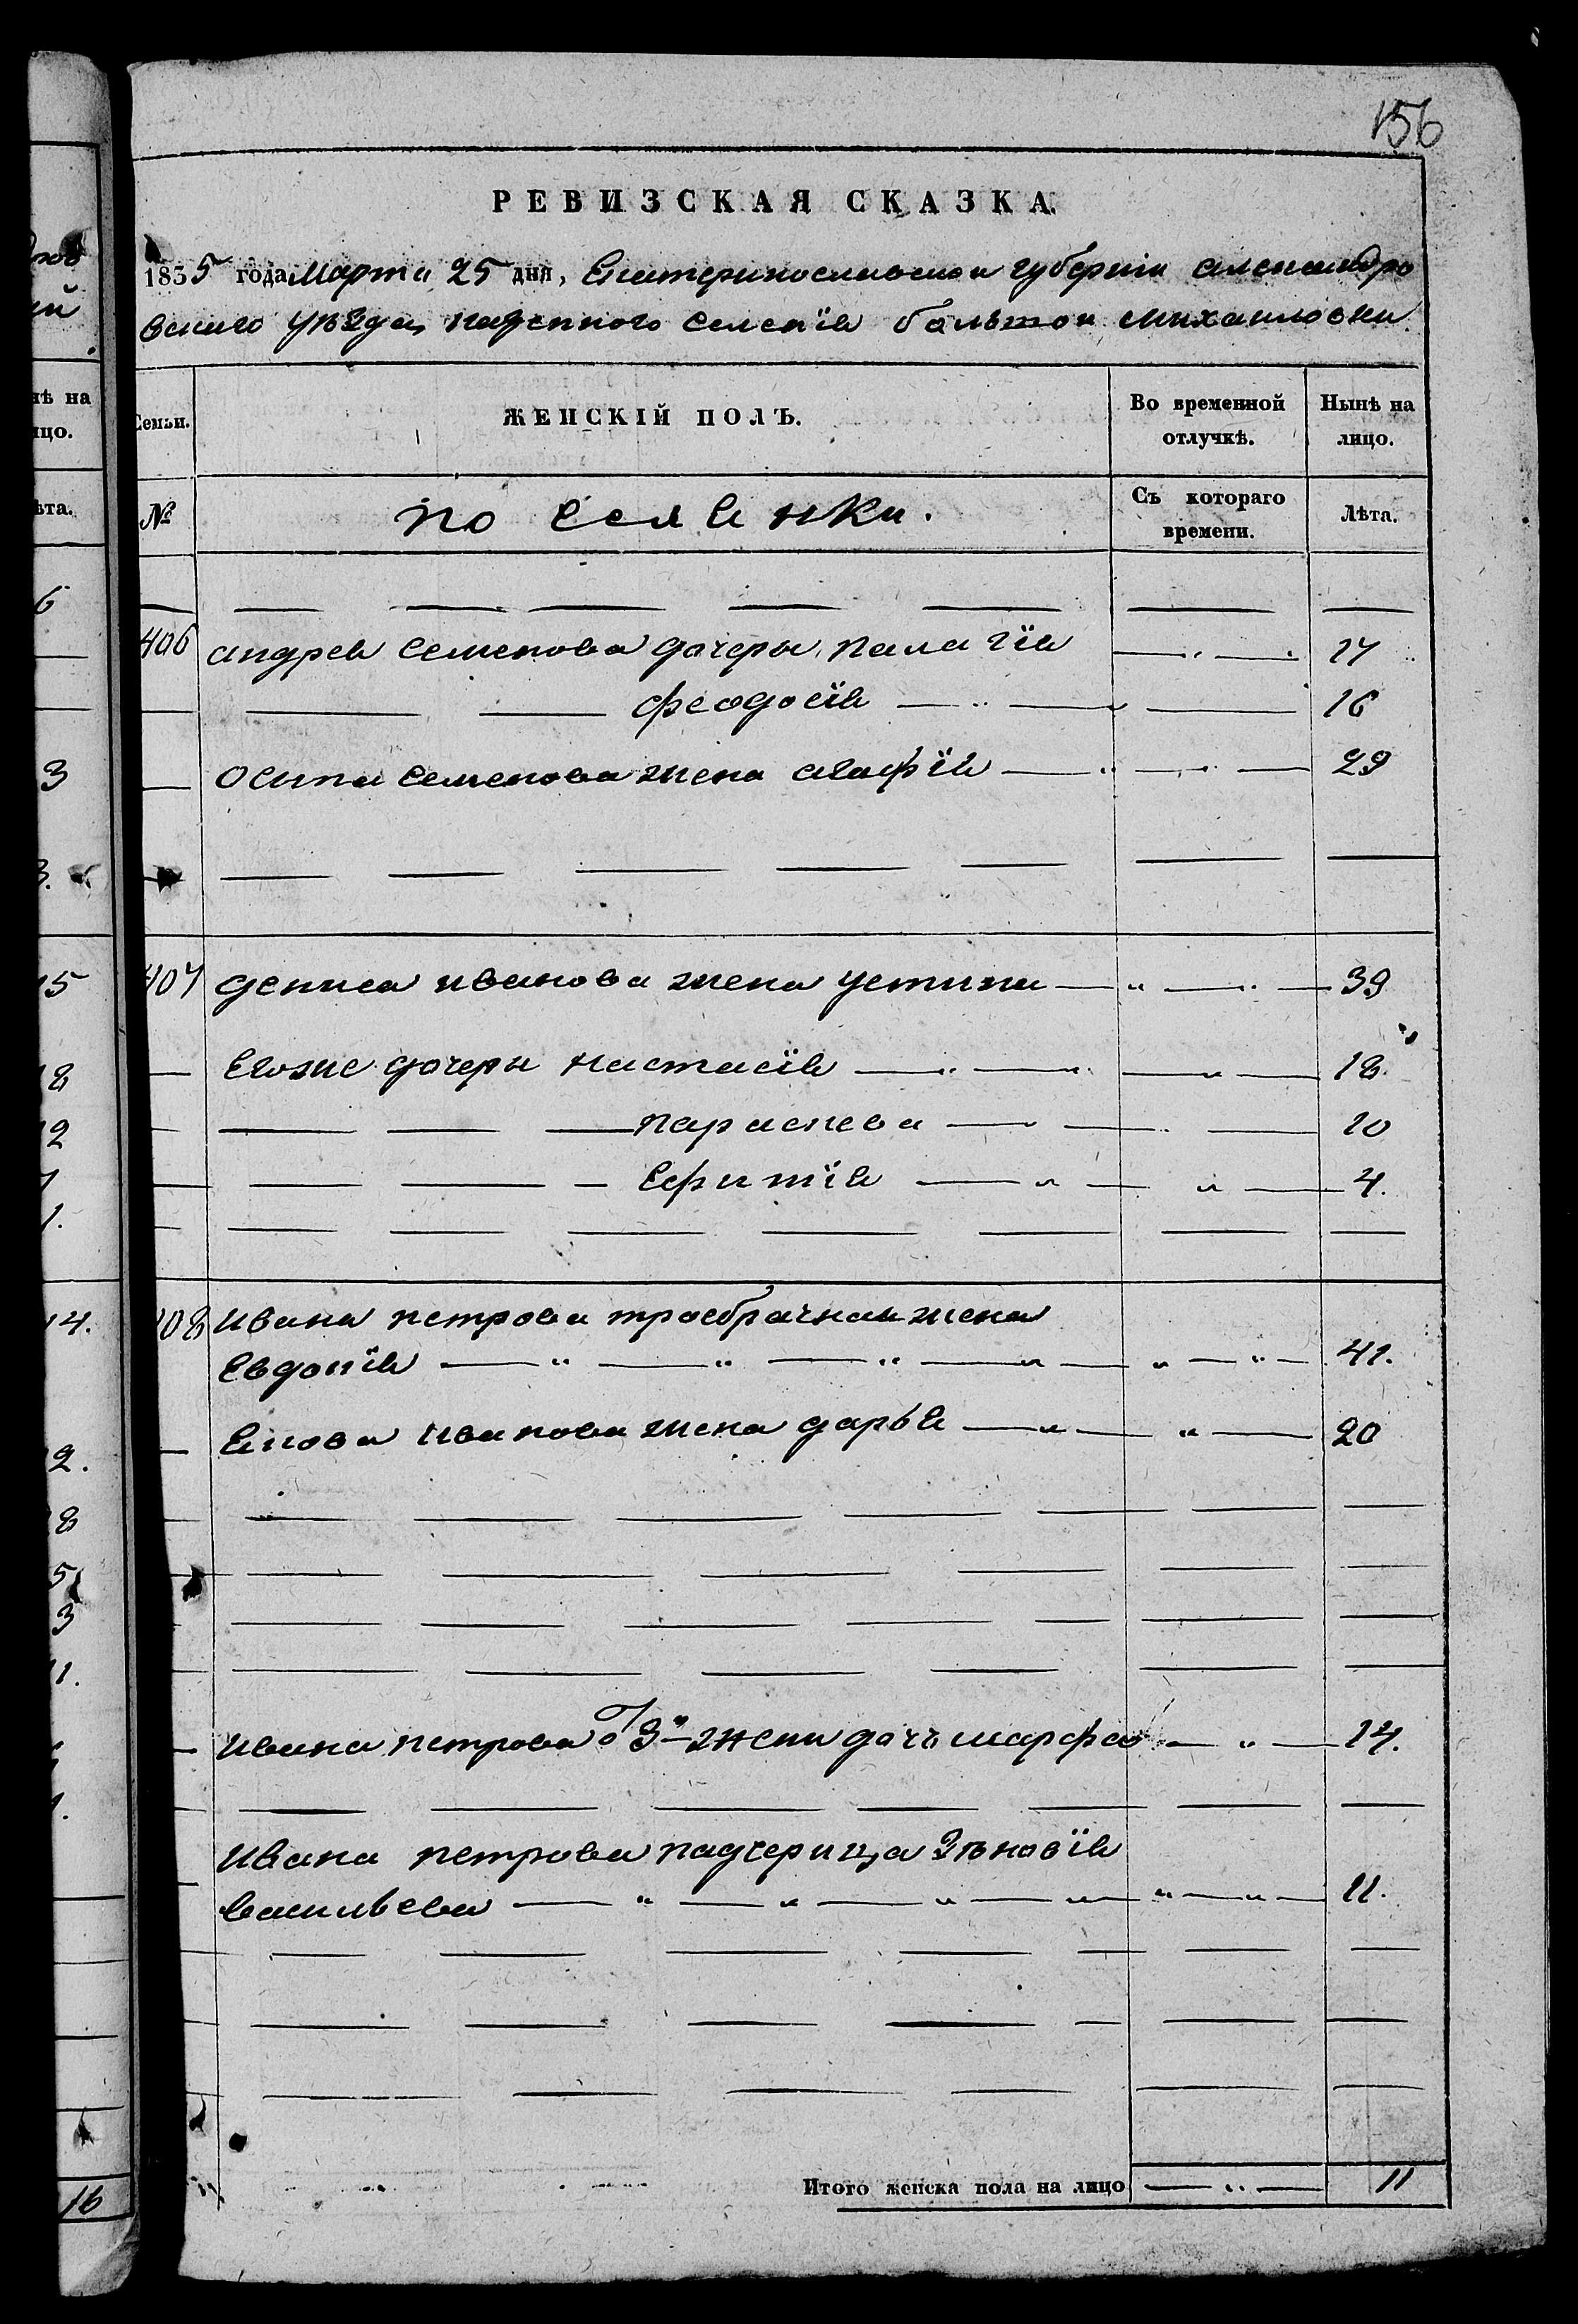 156
РЕВИЗСКАЯ СКАЗКА.
1835 года Марта 25 дня, Екатеринославской губерніи александро
вскаго уѣзда, казенного селенія большой михаиловки
Семьи. ЖЕНСКІЙ ПОЛЪ. Во временной отлучкѣ. Нынѣ на лицо.
№ поселянки. Съ котораго времени. Лѣта.
406 андрея семенова дочеры палагія 17
феодосія 16
осипа семенова жена агафія 29
407 дениса иванова жена устина 39
Егоже дочеры настасія 18
параскева 10
Ефимія 4.
408 ивана петрова троебрачная жена
Евдокія 41.
Якова иванова жена дарья 20
ивана петрова от 3й жены дочь марфа 14.
ивана петрова падчерица Зѣновія
васильева 11.
Итого женска пола на лицо 11
нѣ на
лицо.
ѣта.
6
3
3.
15
18
12
14.
2.
8
5
3
1.
16